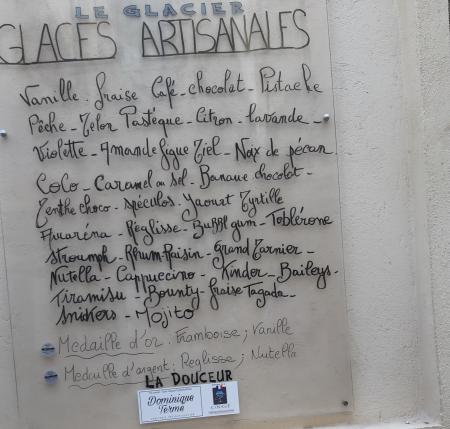 LE GLACIER
GLACES ARTISANALES
Vanille. fraise Café - chocolat - Pistache
Pêche - Melon Pastèque - Citron - lavande -
Violette - Amande figue Miel - Noix de pécan
CoCo - Caramel au sel - Banane chocolat -
Menthe choco - Spéculos. Yaourt Myrtille
Amaréna - Réglisse - Bubbl gum - Toblérone
Stroumph - Rhum-Raisin - Grand Marnier -
Nutella - Cappuccino - Kinder - Baileys -
Tiramisu - Bounty - fraise Tagada -
Snikers - Mojito
Medaille d'or : Framboise ; Vanille
Medaille d'argent : Reglisse ; Nutella
LA DOUCEUR
Dominique
Terme